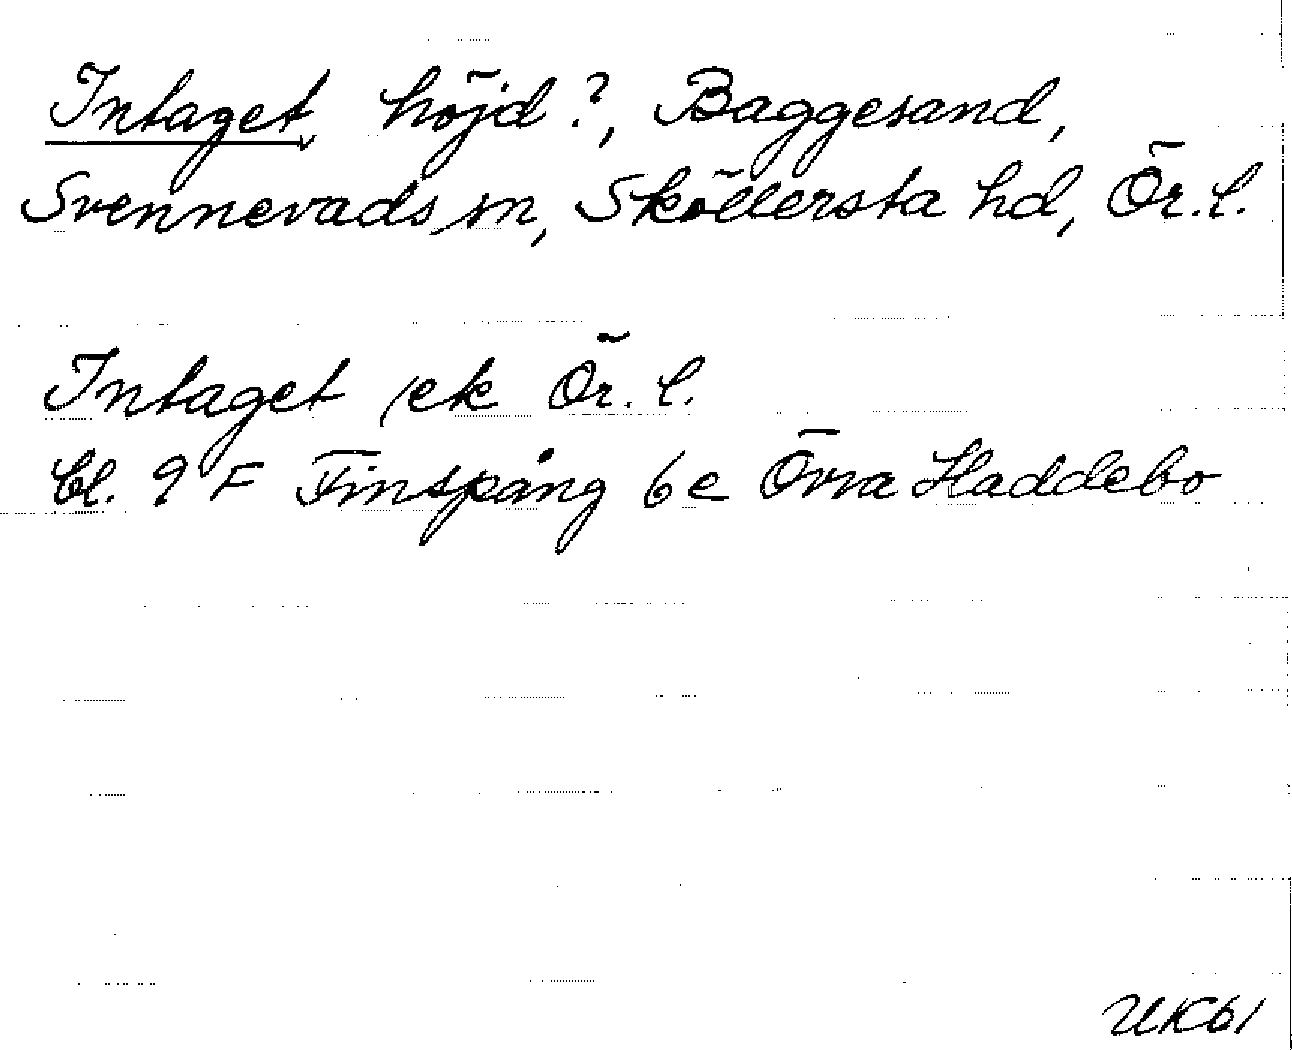 Intaget höjd?, Baggesand,
Svennevads sn, Sköllersta hd, Ör. l.
Intaget /ek Ör. l.
bl. 9 F Finspång 6 e Övra Haddebo
UK61